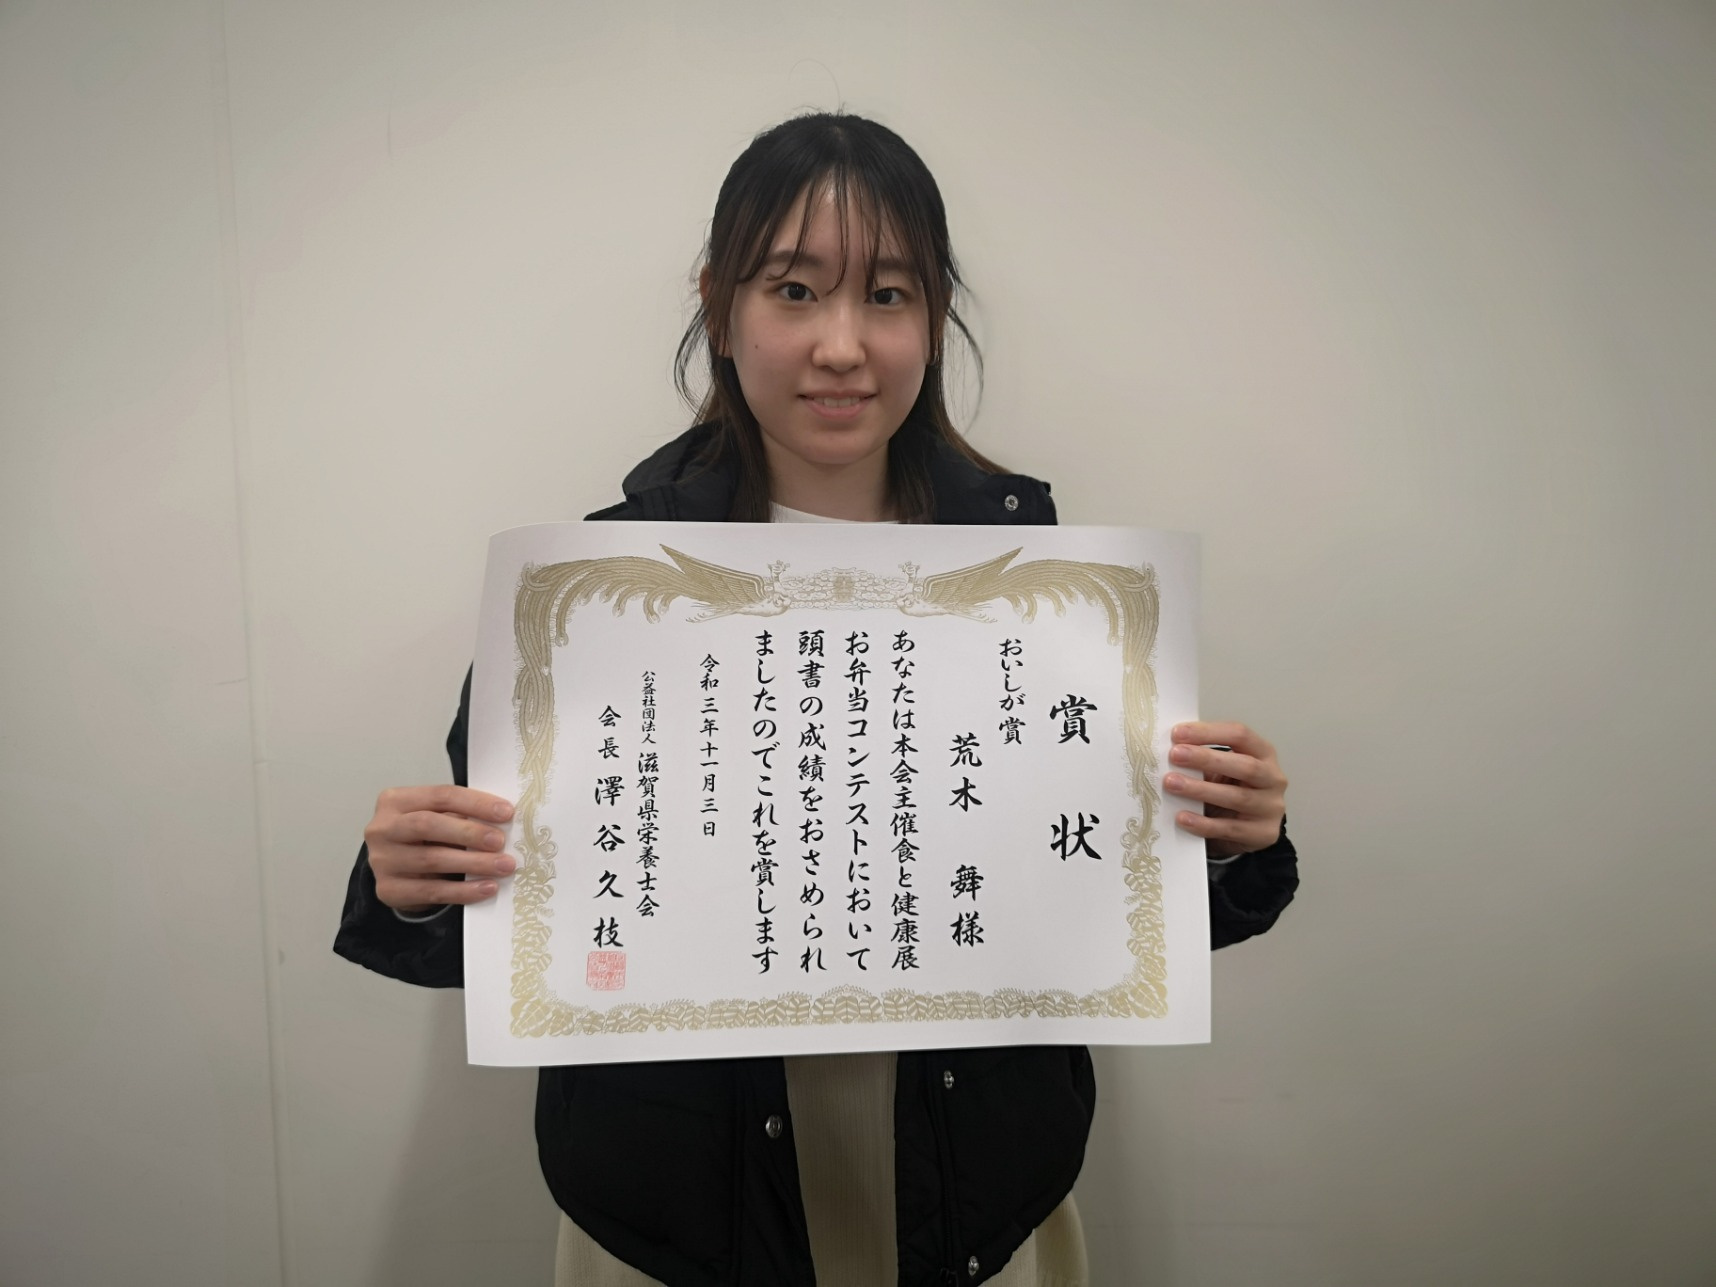 賞状
おいしが賞
荒木 舞様
あなたは本会主催食と健康展
お弁当コンテストにおいて
頭書の成績をおさめられ
ましたのでこれを賞します
令和三年十一月三日
公益社団法人 滋賀県栄養士会
会長 澤谷久枝